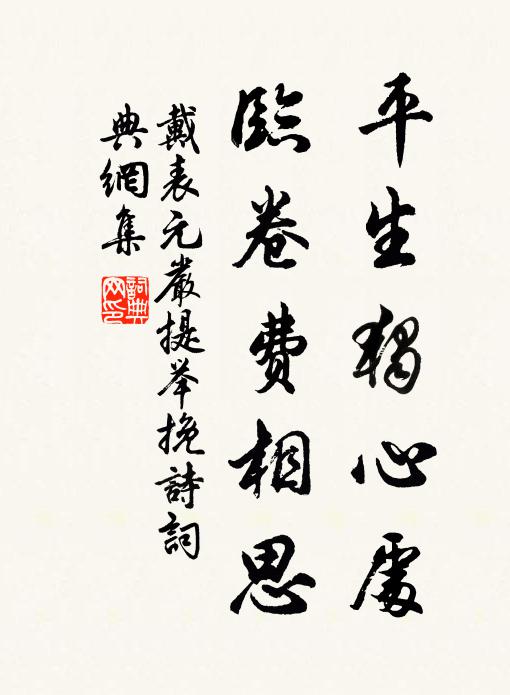 平生獨心處
臨卷費相思
戴表元嚴提举挽詩詞
典網集
詞典网印